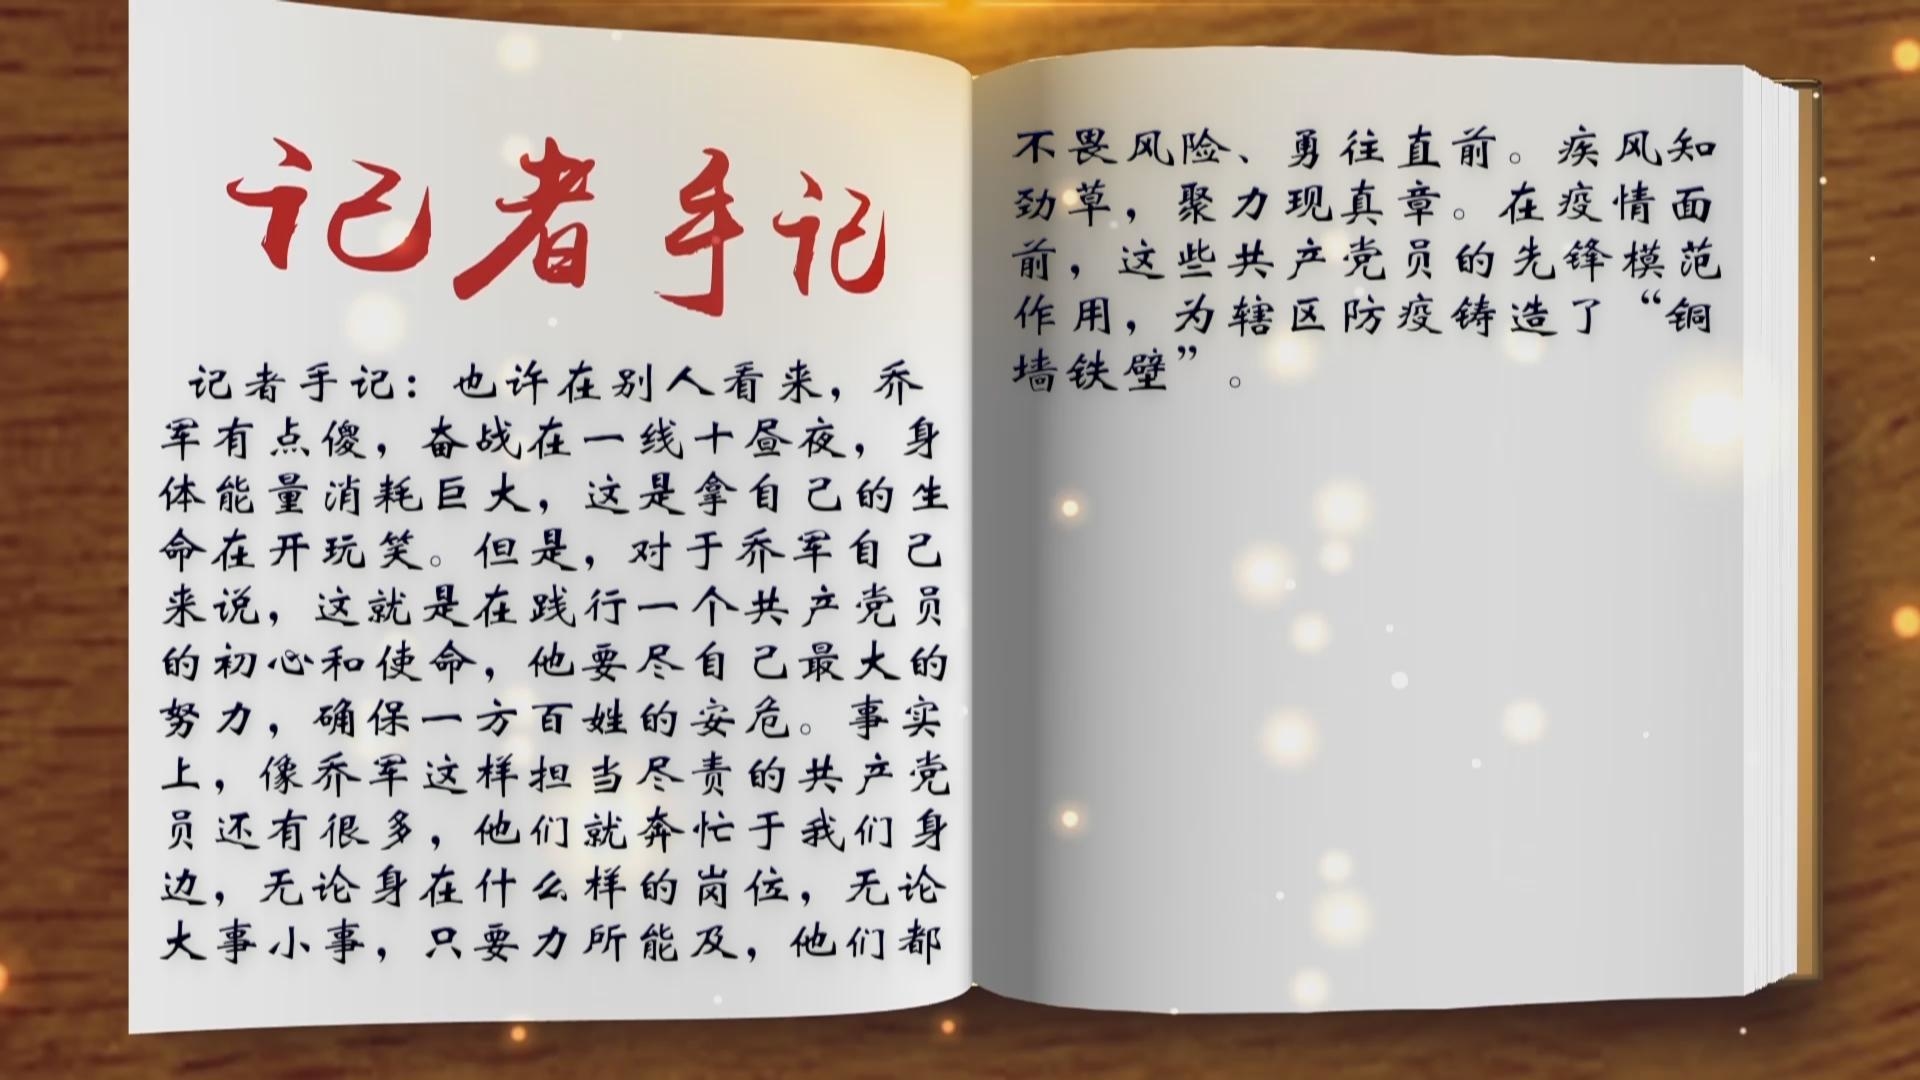 记者手记
记者手记：也许在别人看来，乔
军有点傻，奋战在一线十昼夜，身
体能量消耗巨大，这是拿自己的生
命在开玩笑。但是，对于乔军自己
来说，这就是在践行一个共产党员
的初心和使命，他要尽自己最大的
努力，确保一方百姓的安危。事实
上，像乔军这样担当尽责的共产党
员还有很多，他们就奔忙于我们身
边，无论身在什么样的岗位，无论
大事小事，只要力所能及，他们都
不畏风险、勇往直前。疾风知
劲草，聚力现真章。在疫情面
前，这些共产党员的先锋模范
作用，为辖区防疫铸造了“铜
墙铁壁”。